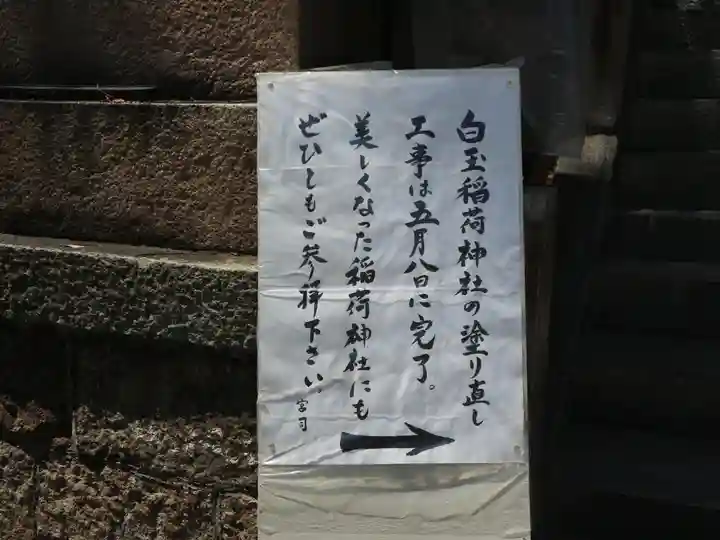 白玉稲荷神社の塗り直し
工事は五月八日に完了。
美しくなった稲荷神社にも
ぜひともご参拝下さい。
宮司